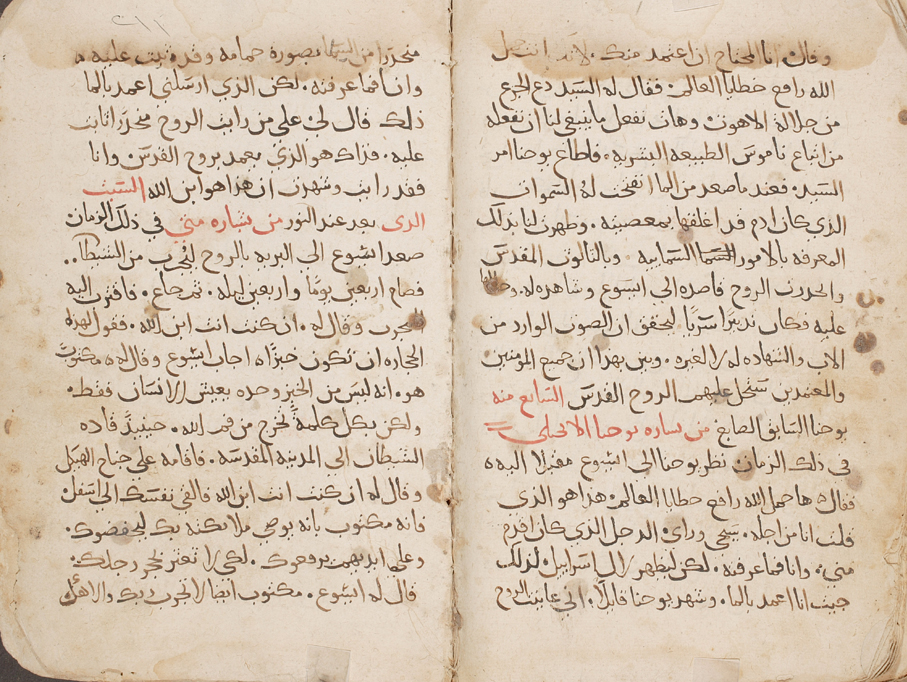 وقال انا المحتاج ان اعتمد منك. لانك انت حمل
الله رافع خطايا العالم. فقال له السيد دع الجزع
من جلالة اللاهوت وهات نفعل ما ينبغي لنا ان نفعله
من اتباع ناموس الطبيعه البشريه. فاطاع يوحنا امر
السيد. فعند ما صعد من الما انفتحت له السموات
الذي كان ادم قد اغلقها بمعصيته. وظهرت لنا بذلك
المعرفه بالامور السمايه وبالثالوث المقدس
وانحدرت الروح قاصده الى ايسوع وشاهده له. وحلت
عليه فكان تدبيرًا سريًا ليحقق ان الصوت الوارد من
الاب والشهاده له لا لغيره. وبين بهذا ان جميع المومنين
والمعتمدين ستحل عليهم الروح القدس السابع منه
يوحنا السابق الصابغ من بشاره يوحنا الانجيلي
في ذلك الزمان نظر يوحنا الى ايسوع مقبلا اليه
فقال ها حمل الله رافع خطايا العالم. هذا هو الذي
قلت انا من اجله. يجي وراي الرجل الذي كان اقدم
مني. وانا فما عرفته. لكن ليظهر لال اسرايل. لذلك
جيت انا اعمد بالما. وشهد يوحنا قايلًا. اني عاينت الروح
منحدرا من السما بصورة حمامه وقد ثبت عليه
وانا فما عرفته. لكن الذي ارسلني اعمد بالما
ذلك قال لي علي من رايت الروح منحدرا ثابت
عليه. فذاك هو الذي يعمد بروح القدس وانا
فقد رايت وشهدت ان هذا هو ابن الله السبت
الذي بعد عند النور من بشاره متي في ذلك الزمان
صعد ايسوع الي البريه بالروح ليجرب من الشيطان.
فصام اربعين يومًا واربعين ليله. ثم جاع. فاقترب اليه
المجرب وقال له. ان كنت انت ابن الله. فقول لهذه
الحجاره ان تكون خبزًا اجاب ايسوع وقال له مكتوب
هو. انه ليس من الخبز وحده يعيش الانسان فقط.
ولكن بكل كلمة تخرج من فم الله. حينيذ قاده
الشيطان الى المدينه المقدسه. فاقامه على جناح الهيكل
وقال له ان كنت انت ابن الله فالقي نفسك الي اسفل
فانه مكتوب بانه يوصي ملايكته بك ليحفضوك.
وعلي ايديهم يرفعوك. لكي لا تعتر بحجر رجلك.
قال له ايسوع. مكتوب ايضا لا تجرب ربك والاهك